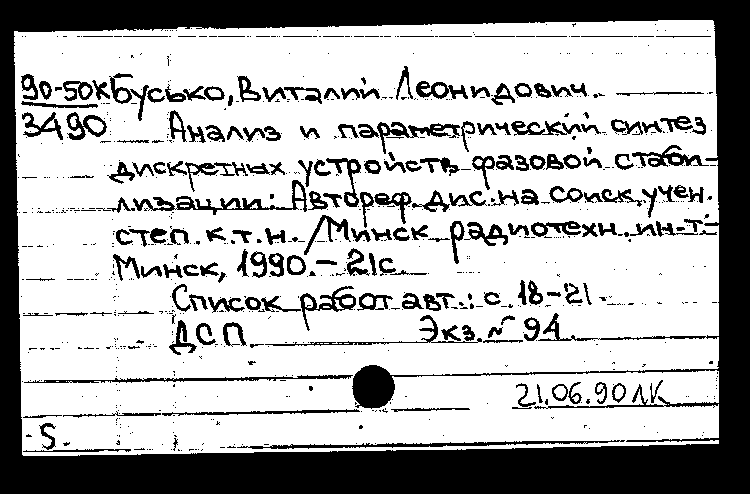 90-50к Бусько, Виталий Леонидович.
3490 Анализ и параметрический синтез
дискретных устройств фазовой стаби-
лизации: Автореф. дис. на соиск. учен.
степ. к.т.н. / Минск. радиотехн. ин-т.-
Минск, 1990.-21с.
Список работ авт.: с. 18-21.
ДСП. Экз. № 94.
21.06.90 ЛК
S.